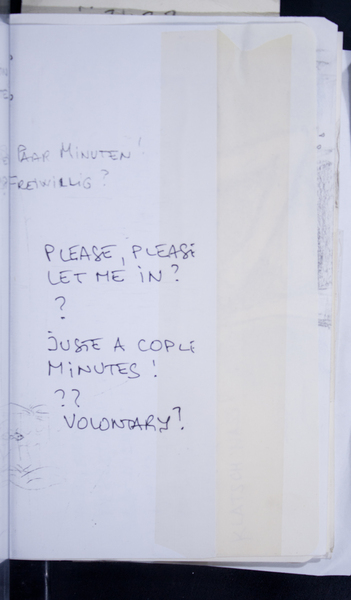 PAAR MINUTEN!
FREIWILLIG?
PLEASE, PLEASE
LET ME IN?
?
JUSTE A COPLE
MINUTES!
??
VOLONTARY?